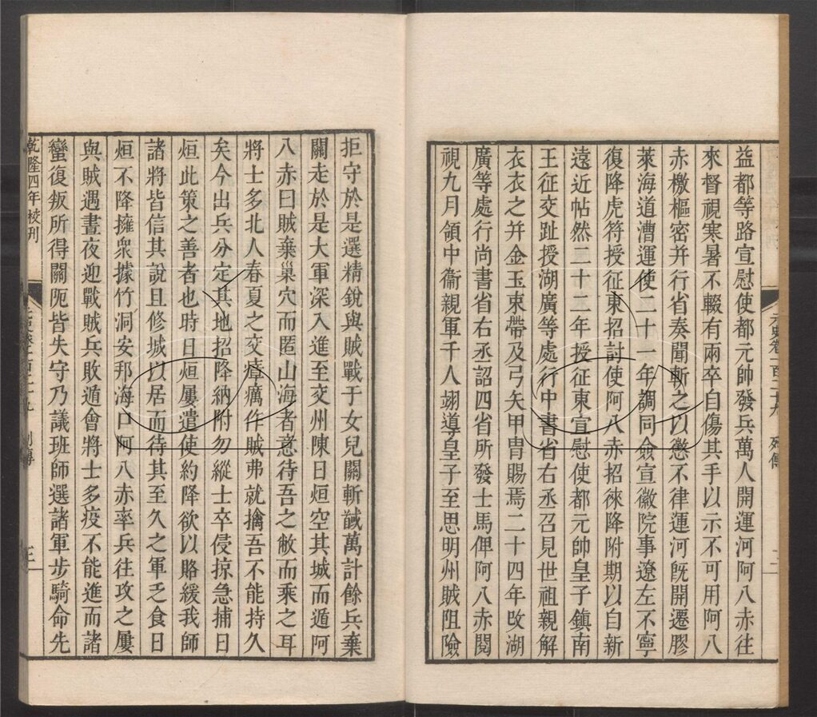 益都等路宣慰使都元帥發兵萬人開運河阿八赤往
來督視寒暑不輟有兩卒自傷其手以示不可用阿八
赤檄樞密并行省奏聞斬之以懲不律運河旣開遷膠
萊海道漕運使二十一年調同僉宣徽院事遼左不寧
復降虎符授征東招討使阿八赤招徠降附期以自新
遠近帖然二十二年授征東宣慰使都元帥皇子鎮南
王征交趾授湖廣等處行中書省右丞召見世祖親解
衣衣之并金玉束帶及弓矢甲冑賜焉二十四年改湖
廣等處行尚書省右丞詔四省所發士馬俾阿八赤閱
視九月領中衞親軍千人翊導皇子至思明州賊阻險
元史卷一百二十九 列傳 二
拒守於是選精銳與賊戰于女兒關斬馘萬計餘兵棄
關走於是大軍深入進至交州陳日烜空其城而遁阿
八赤曰賊棄巢穴而匿山海者意待吾之敝而乘之耳
將士多北人春夏之交瘴癘作賊弗就擒吾不能持久
矣今出兵分定其地招降納附勿縱士卒侵掠急捕日
烜此策之善者也時日烜屢遣使約降欲以賂緩我師
諸將皆信其說且修城以居而待其至久之軍乏食日
烜不降擁衆據竹洞安邦海口阿八赤率兵往攻之屢
與賊遇晝夜迎戰賊兵敗遁會將士多疫不能進而諸
蠻復叛所得關阨皆失守乃議班師選諸軍步騎命先
乾隆四年校刊